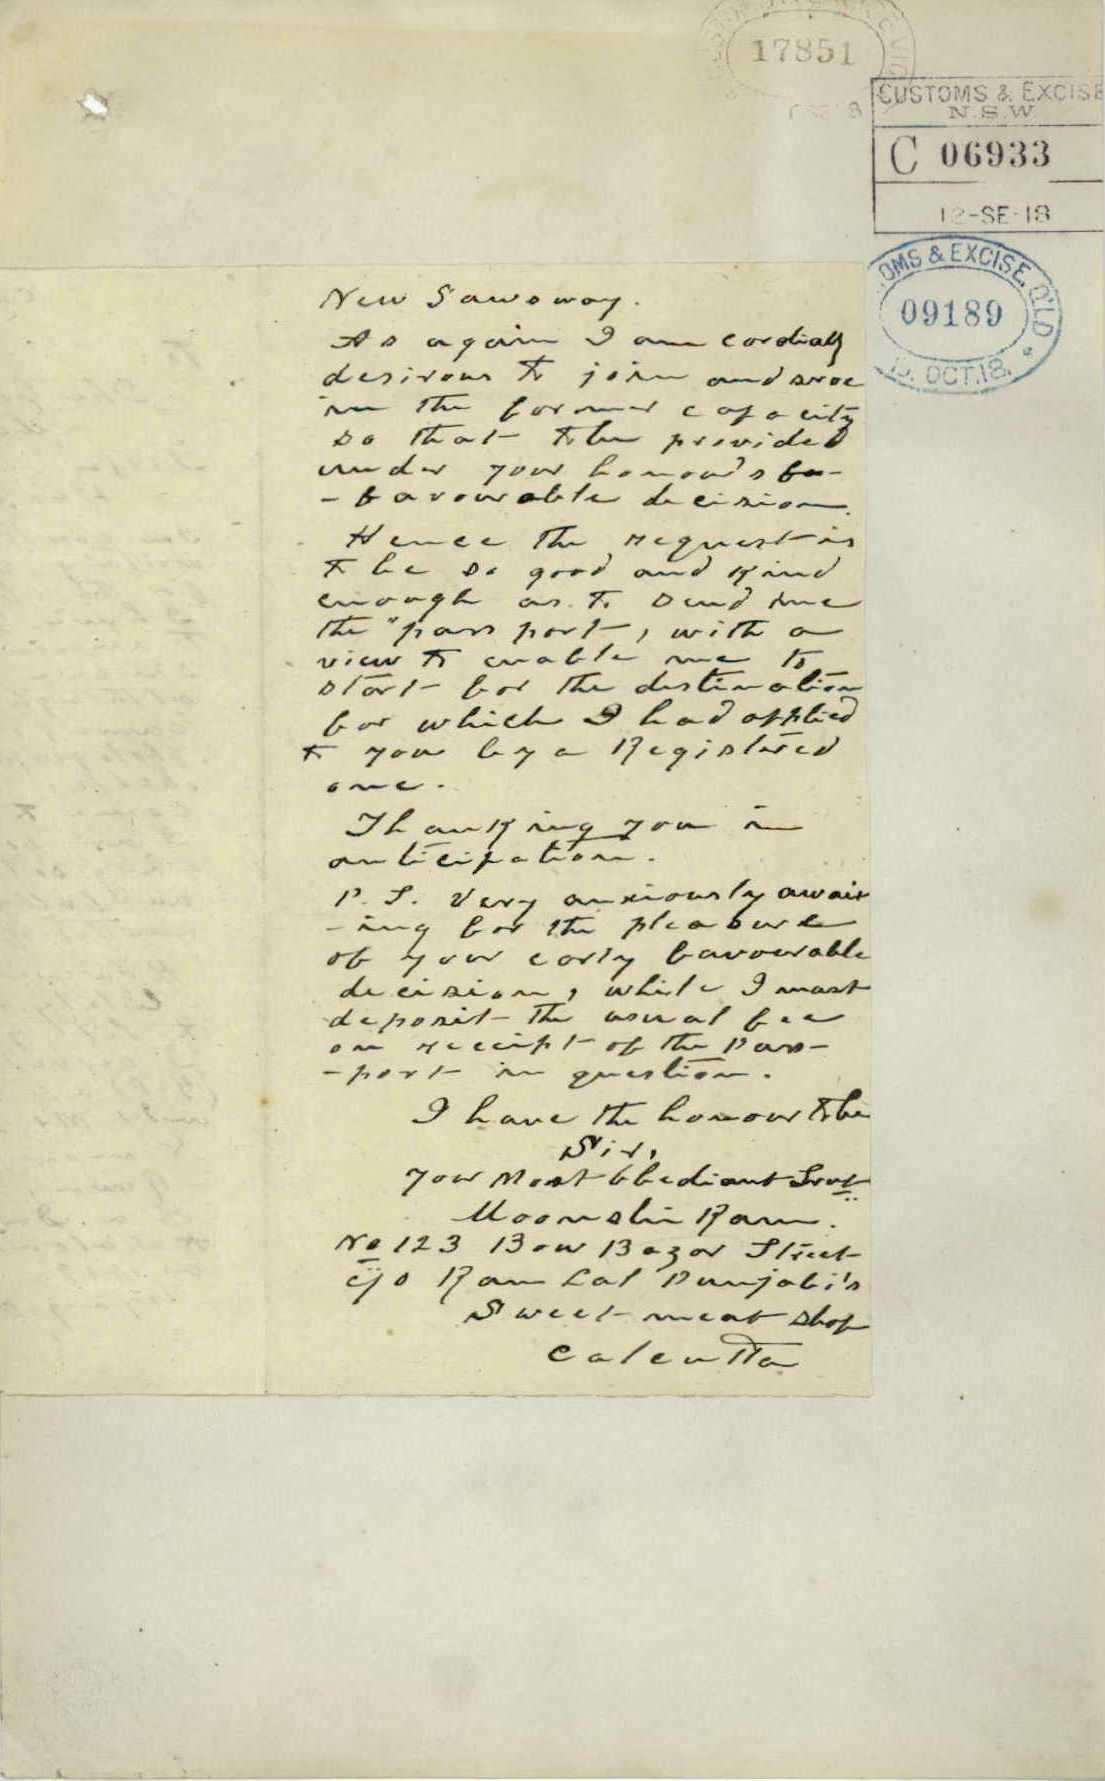 17851
CUSTOMS & EXCISE
N.S.W.
C 06933
12-SE-18
OMS & EXCISE, Q'LD
09189
OCT.18.
New Sawsway.
As again I am cordially
desirous to join and
in the former capacity
so that to be provided
under your honour's fa-
-favourable decision.
Hence the request is
to be so good and kind
enough as to send me
the "pass port, with a
view to enable me to
start for the destination
for which I had applied
to you by a Registered
one.
Thanking you in
anticipation.
P. S. Very anxiously await
-ing for the pleasure
of your early favourable
decision, while I must
deposit the usual fee
on receipt of the Pass-
-port in question.
I have the honour to be
Sir,
your most obediant Srvt
Moonshi Ram.
No 123 Bow Bazar Street
c/o Ram Lal Punjabi's
Sweet meat shop
Calcutta